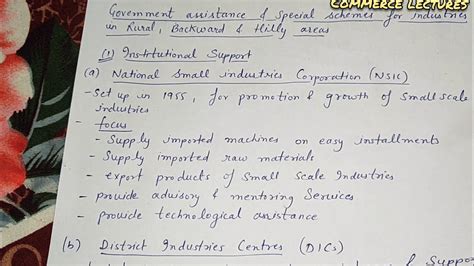 COMMERCE LECTURES
Government assistance & Special schemes for industries
in Rural, Backward & Hilly areas
(1) Institutional Support
(a) National Small industries Corporation (NSIC)
- Set up in 1955, for promotion & growth of small scale
industries
- focus
- Supply imported machines on easy installments
- Supply imported raw materials
- export products of Small Scale Industries
- provide advisory & mentoring Services
- provide technological assistance
(b) District Industries Centres (DICs)
& Support